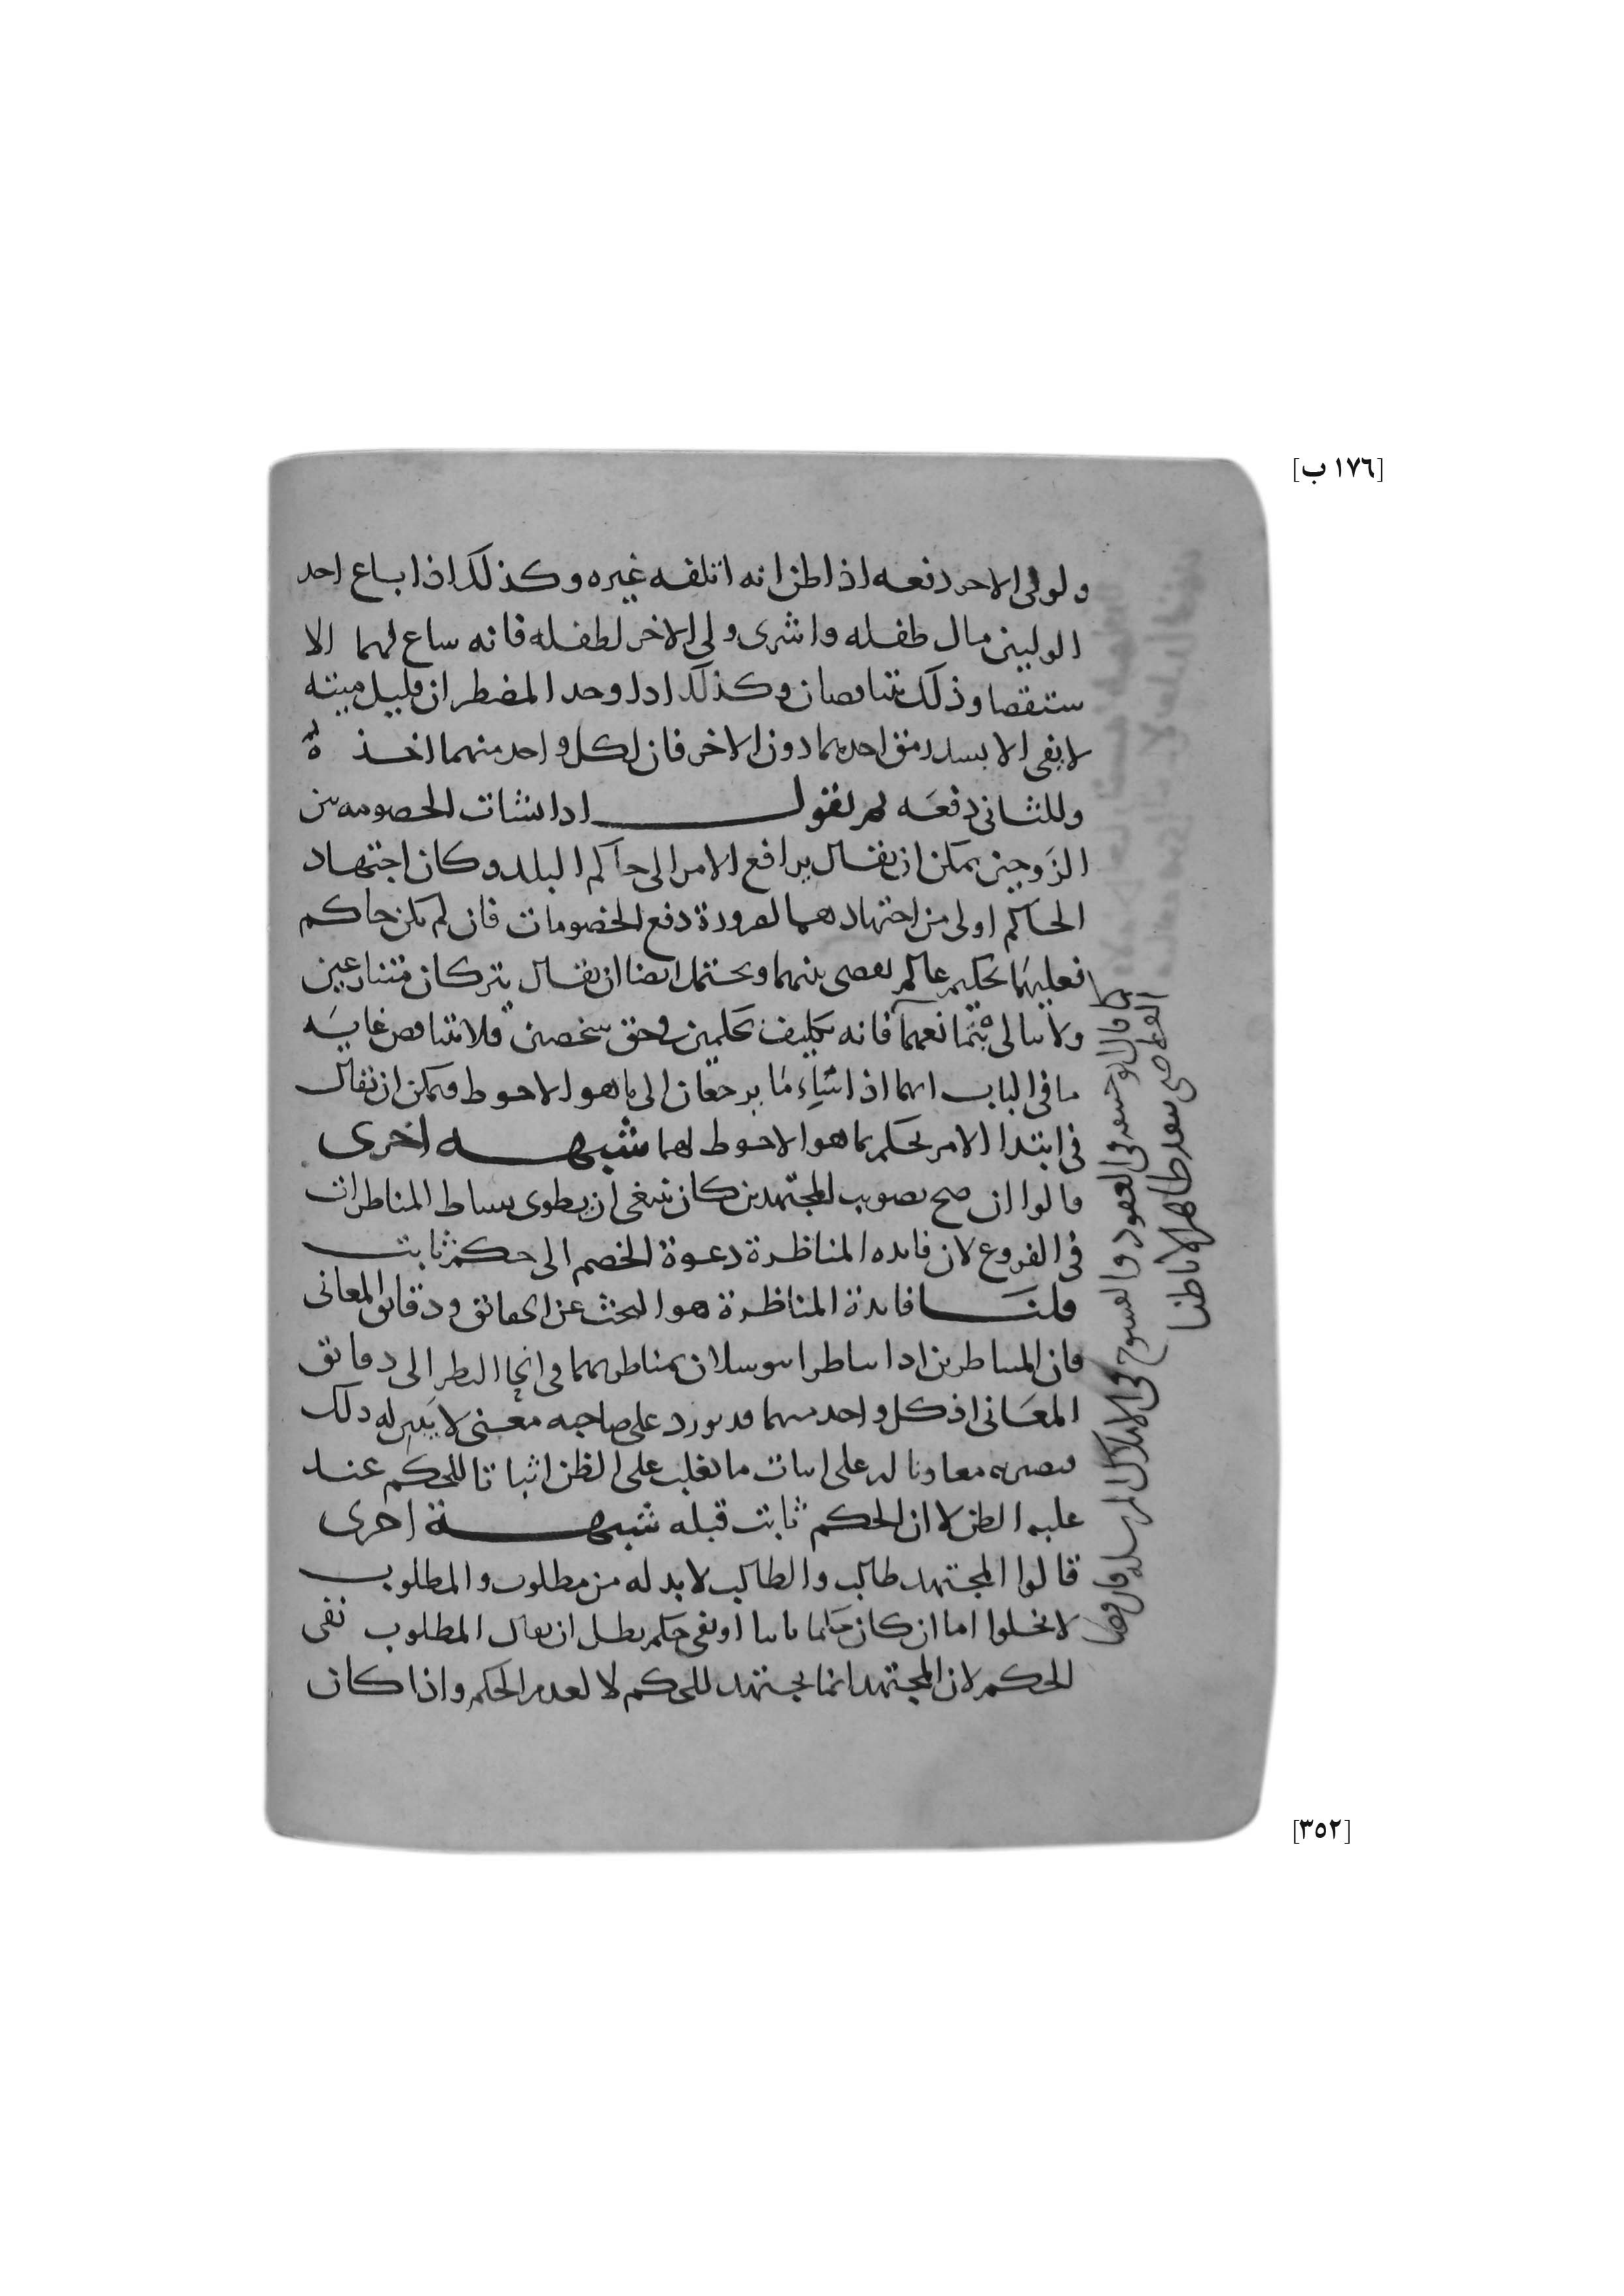 [١٧٦ ب]
ولولي الاخر دفعه اذا ظن انه اتلفه غيره وكذلك اذا باع احد
الوليين مال طفله واشترى ولي الاخر لطفله فانه ساع لهما الا
ستقصا وذلك يتناقضان وكذلك اذا وجد المضطران قليل ميته
لا يفي الا بسد رمق احدهما دون الاخر فان لكل واحد منهما اخذه
وللثاني دفعه ثم نقول اذا نشات الخصومه بين
الزوجين يمكن ان يقال يرافع الامر الى حاكم البلد وكان اجتهاد
الحاكم اولى من اجتهادهما لضرورة دفع الخصومات فان لم يكن حاكم
فعليهما تحكيم عالم يقضي بينهما ويحتمل ايضا ان يقال يتركان متنازعين
ولا يبالى بتمانعهما فانه تكليف بحكمين في حق شخصين فلا يتناقض غايه
ما في الباب انهما اذا يرجعان الى ما هو الاحوط ويمكن ان يقال
في ابتدا الامر يحكم بما هو الاحوط لهما شبهه اخرى
قالوا ان صح تصويب المجتهدين كان ينبغي ان يطوى بساط المناظرات
في الفروع لان فايده المناظرة دعوة الخصم الى حكم ثابت
قلنا فايدة المناظرة هو البحث عن الحقائق ودقايق المعاني
فان المناظرين اذا تناظرا يتوسلان بمناظرتهما في النظر الى دقائق
المعاني اذ كل واحد منهما قد يورد على صاحبه معنى لا يتبين له ذلك
فيصير معاونا له على اثبات ما يغلب على الظن اثباتا للحكم عند
غلبه الظن لا ان الحكم ثابت قبله شبهة اخرى
قالوا المجتهد طالب والطالب لا بد له من مطلوب والمطلوب
لا يخلوا اما ان كان حكما ثابتا او نفي حكم بطل ان يقال المطلوب نفي
الحكم لان المجتهد انما يجتهد للحكم لا لعدم الحكم واذا كان
كما قال ابو حنيفه في العقود والفسوخ في الاملاك المرسله فان قضا
القاضي ينفذ ظاهرا لا باطنا
[٣٥٢]